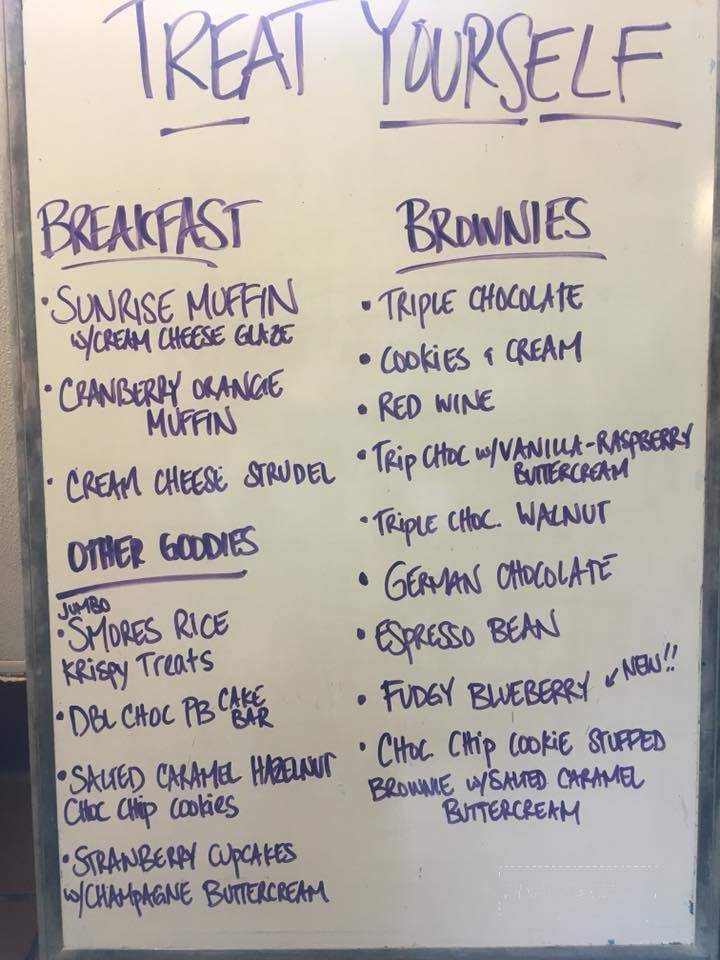 TREAT YOURSELF
BREAKFAST
• SUNRISE MUFFIN
w/CREAM CHEESE GLAZE
• CRANBERRY ORANGE
MUFFIN
• CREAM CHEESE STRUDEL
OTHER GOODIES
JUMBO
• SMORES RICE
KRISPY TREATS
• DBL CHOC PB CAKE
BAR
• SALTED CARAMEL HAZELNUT
CHOC CHIP COOKIES
• STRAWBERRY CUPCAKES
w/CHAMPAGNE BUTTERCREAM
BROWNIES
• TRIPLE CHOCOLATE
• COOKIES & CREAM
• RED WINE
• TRIP CHOC w/VANILLA-RASPBERRY
BUTTERCREAM
• TRIPLE CHOC. WALNUT
• GERMAN CHOCOLATE
• ESPRESSO BEAN
• FUDGY BLUEBERRY ↙ NEW!!
• CHOC CHIP COOKIE STUFFED
BROWNIE w/SALTED CARAMEL
BUTTERCREAM